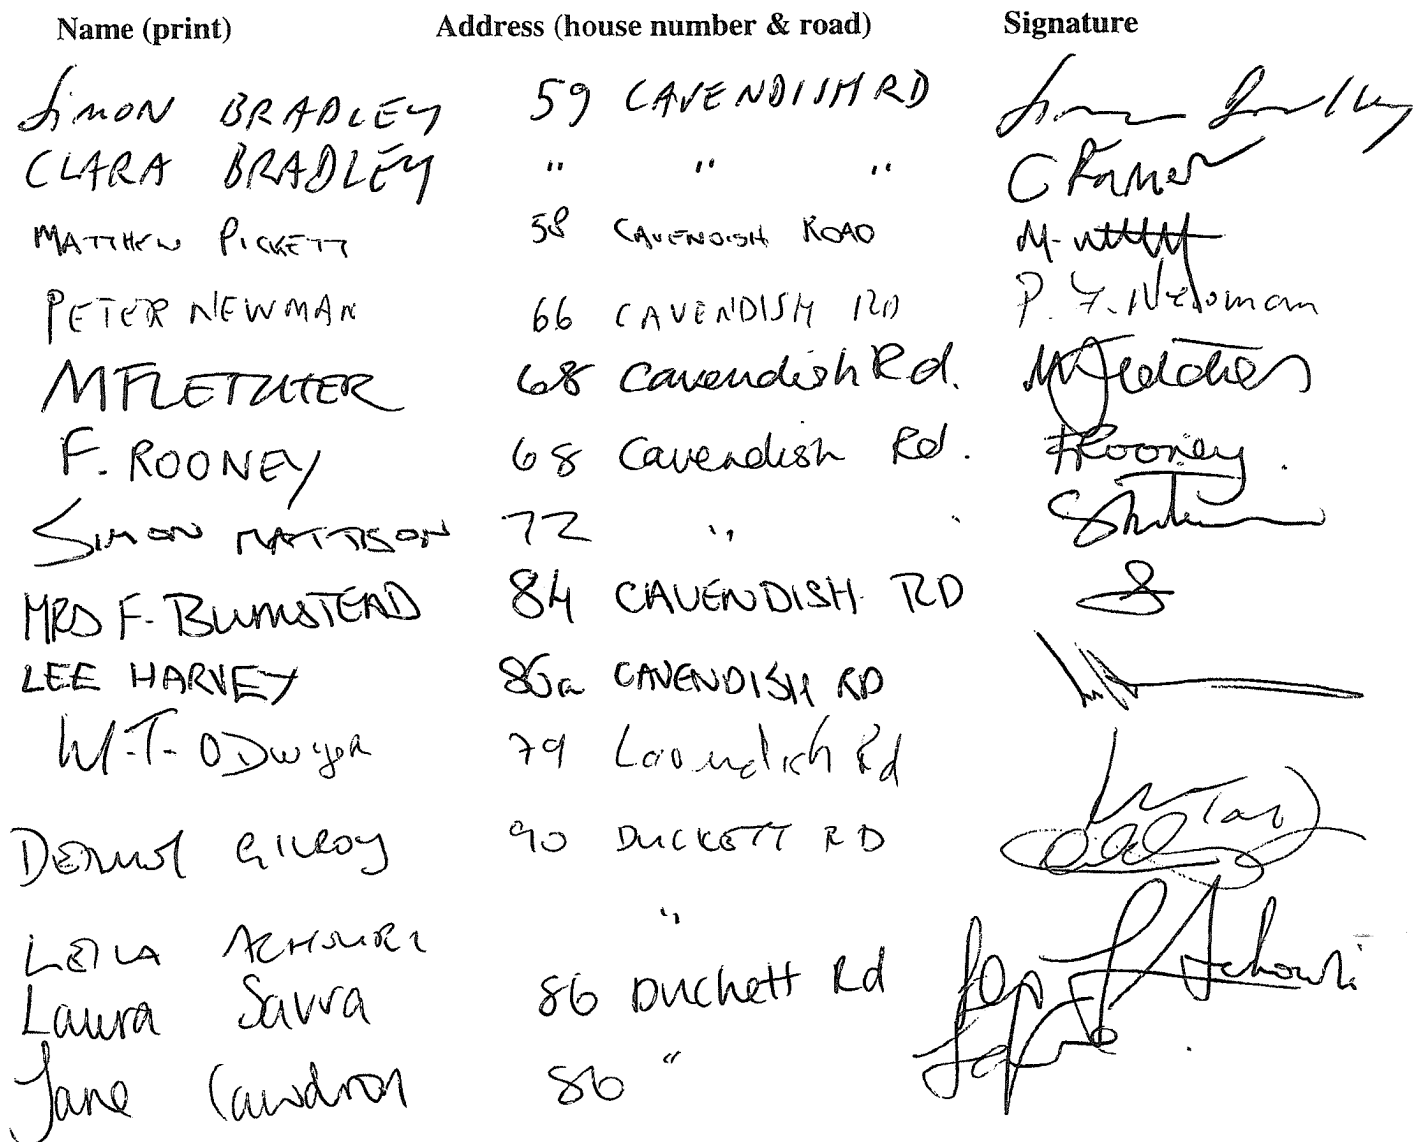 Name (print) Address (house number & road) Signature
SIMON BRADLEY 59 CAVENDISH RD
CLARA BRADLEY " " "
MATTHEW PICKETT 58 CAVENDISH ROAD
PETER NEWMAN 66 CAVENDISH RD P. F. Newman
M FLETCHER 68 Cavendish Rd. M Fletcher
F. ROONEY 68 Cavendish Rd. F Rooney.
SIMON MATTISON 72 " "
MRS F. BUMSTEAD 84 CAVENDISH RD
LEE HARVEY 86a CAVENDISH RD
W.T. O Dwyer 79 Cavendish Rd
DERMOT GILROY 90 DUCKETT RD
LEILA ACHOURI "
Laura Savra 86 Duckett Rd
Jane Cawdron 86 "